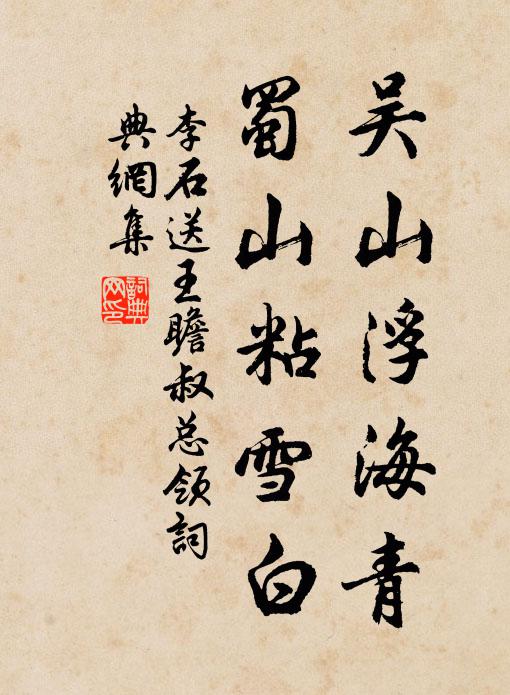 吴山浮海青
蜀山粘雪白
李石送王瞻叔总领詞
典網集
詞典網印